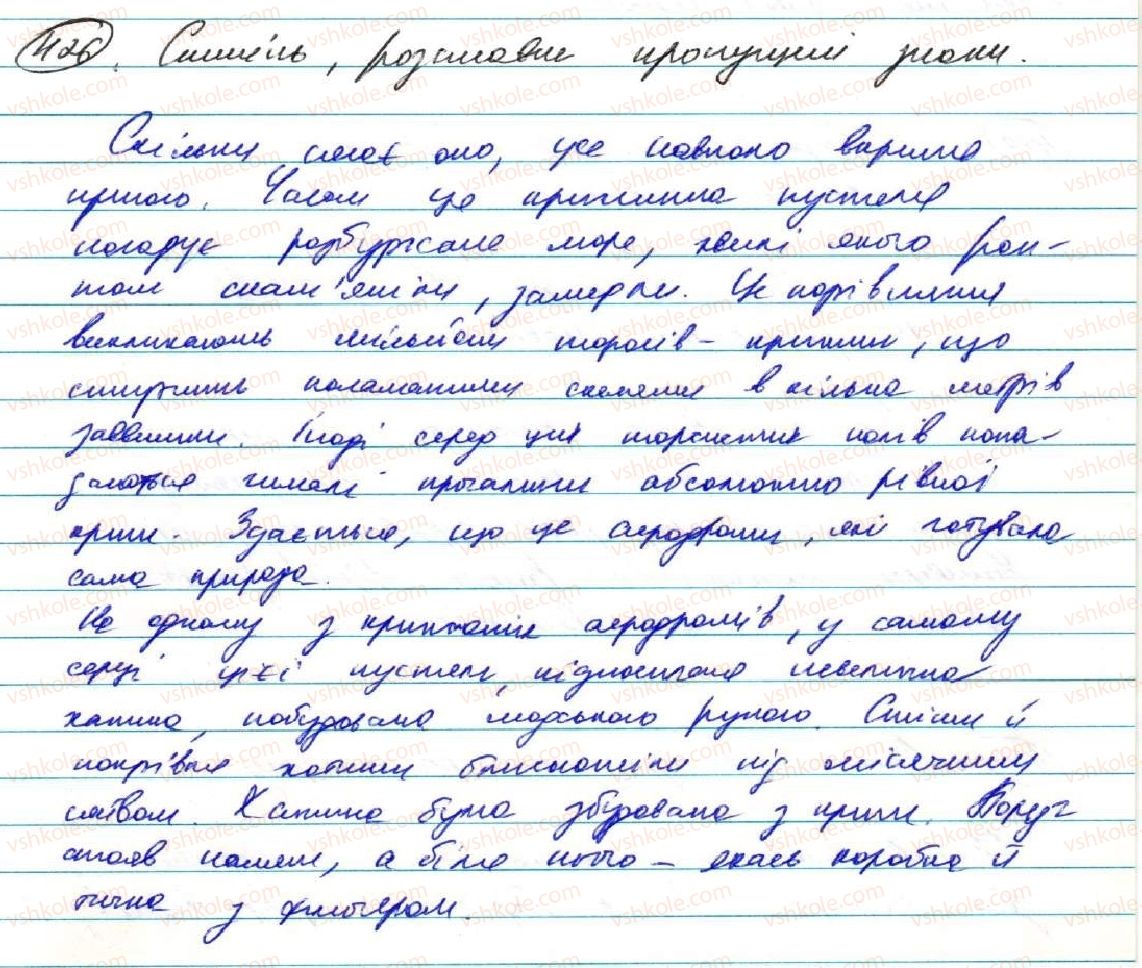 426. Спишіть, розставте пропущені знаки.
Скільки сягає око, усе навколо вкрите
кригою. Часом ця крижана пустеля
нагадує розбурхане море, хвилі якого рап-
том скам'яніли, замерли. Це порівняння
викликають мільйони торосів - крижин, що
стирчать поламаними скелями в кілька метрів
заввишки. Іноді серед цих торосистих полів попа-
даються чималі прогалини абсолютно рівної
криги. Здається, що це аеродроми, які готувала
сама природа.
На одному з крижаних аеродромів, у самому
серці цієї пустелі, підносилася невеличка
хатина, побудована людською рукою. Стіни й
покрівля хатини блискотіли під місячним
сяйвом. Хатина була збудована з криги. Поруч
стояв намет, а біля нього - якась коробка й
тичка з флюгером.